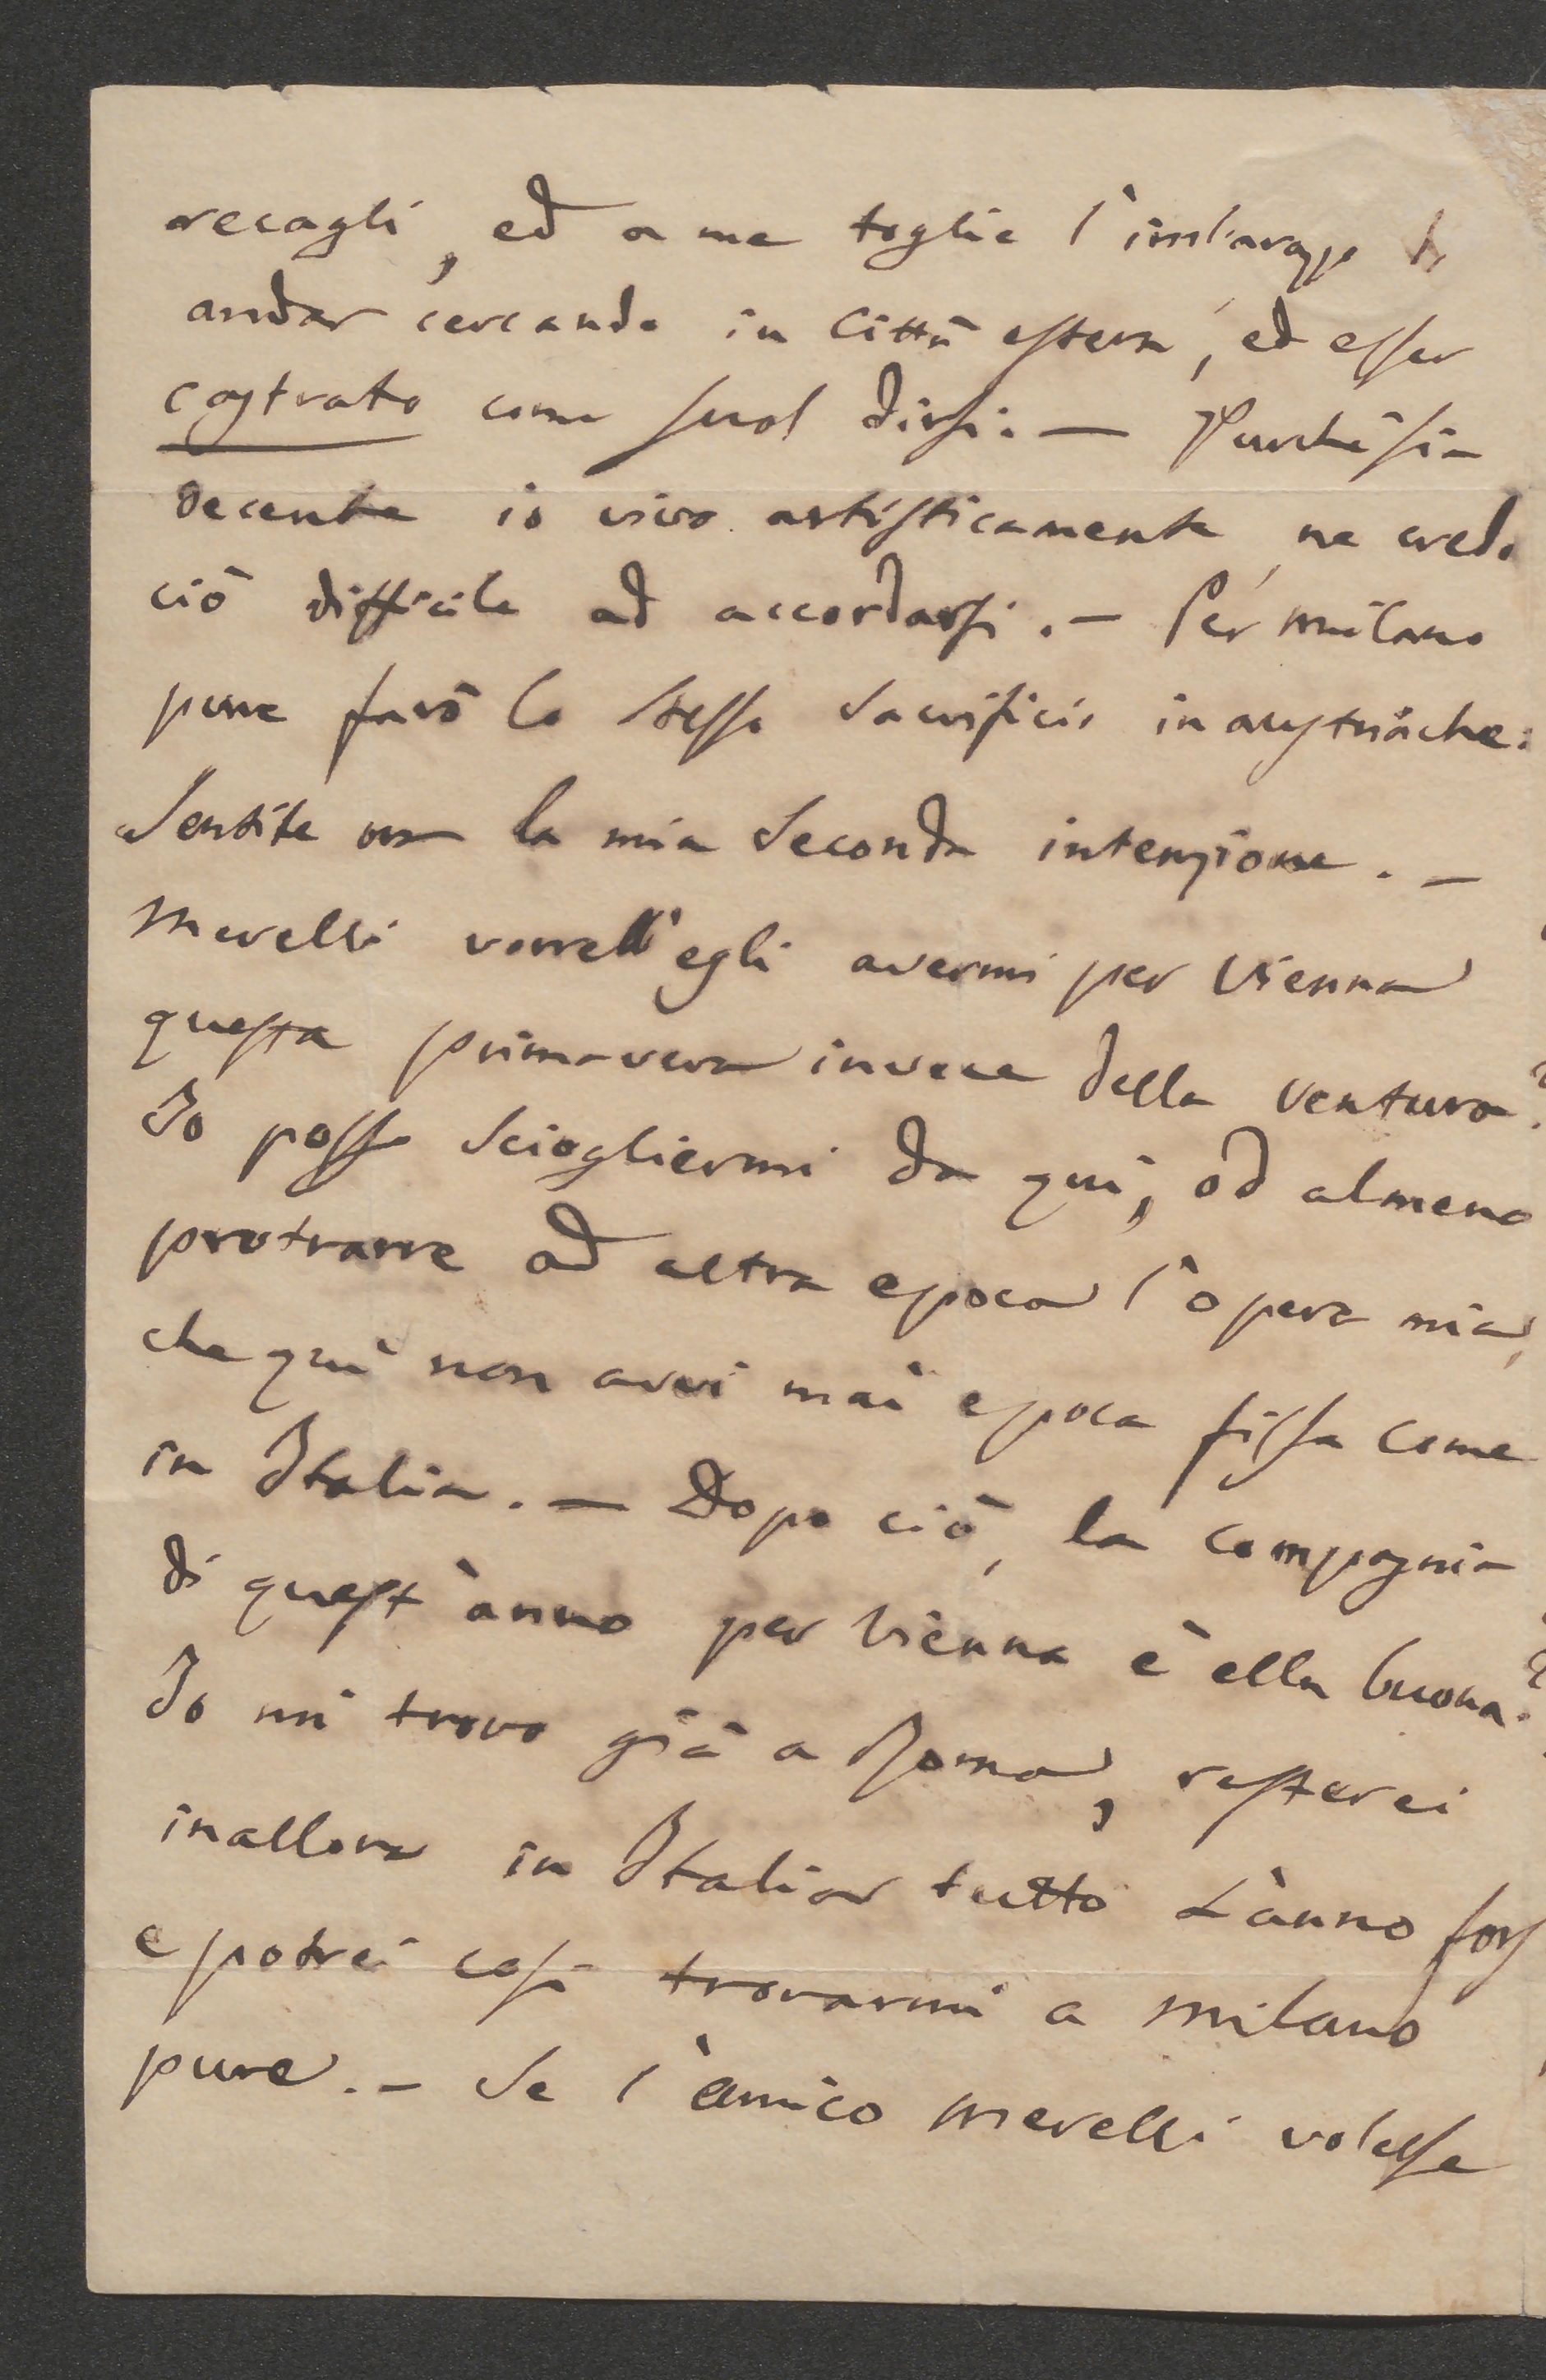 recagli, ed a me toglie l'imbarazzo di
andar cercando in Città estera, ed esser
castrato come suol dirsi: — Purchè sia
decente io vivo artisticamente, ne credo
ciò difficile ad accordarsi. — Per Milano
pure farò lo stesso sacrificio in austriache:
Sentite or la mia seconda intenzione. —
Merelli vorrebb'egli avermi per Vienna
questa primavera invece della ventura?
Io posso sciogliermi da qui, od almeno
protrarre ad altra epoca l'opera mia,
che quì non avvi mai epoca fissa come
in Italia. — Dopo ciò, la compagnia
di quest'anno per Vienna è ella buona?
Io mi trovo già a Roma, resterei
inallora in Italia tutto L'anno fors
e potrei così trovarmi a Milano
pure. — Se l'amico Merelli volesse